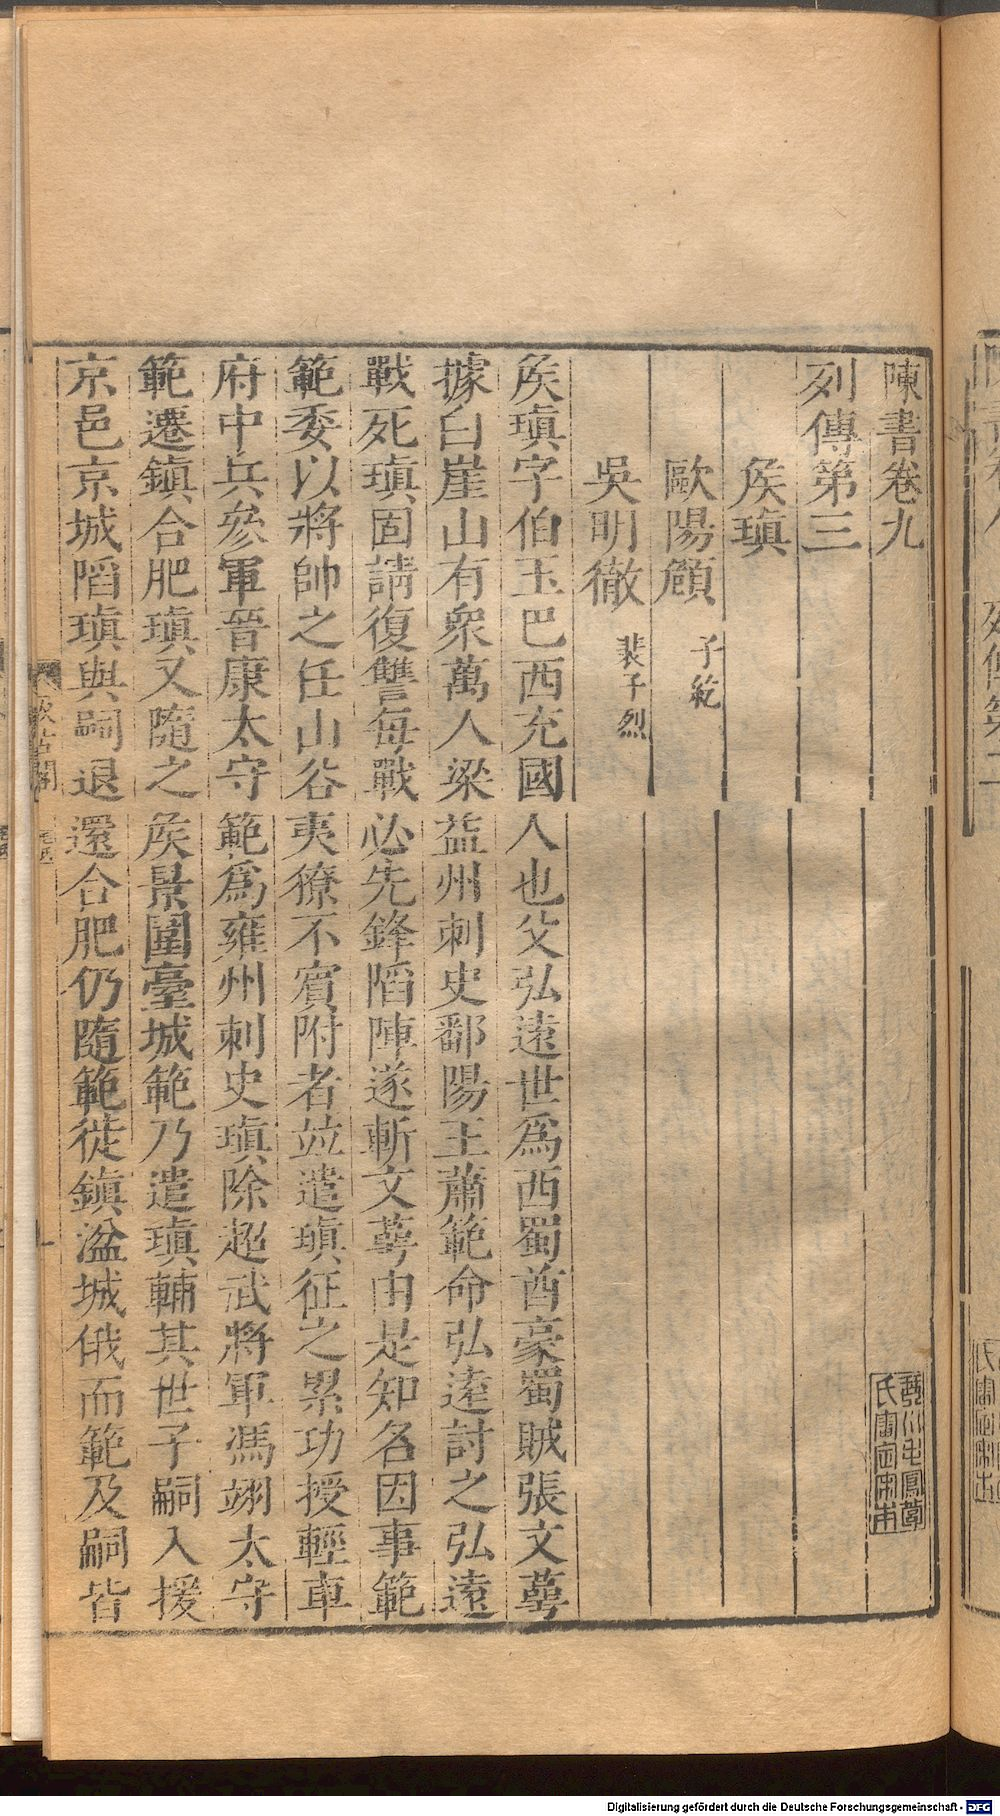 陳書卷九
列傳第三
矦瑱
歐陽頠 子紇
吳明徹 裴子烈
矦瑱字伯玉巴西充國人也父弘遠世爲西蜀酋豪蜀賊張文萼
據白崖山有衆萬人梁益州刺史鄱陽王蕭範命弘遠討之弘遠
戰死瑱固請復讐每戰必先鋒陷陣遂斬文萼由是知名因事範
範委以將帥之任山谷夷獠不賓附者竝遣瑱征之累功授輕車
府中兵參軍晉康太守範爲雍州刺史瑱除超武將軍馮翊太守
範遷鎮合肥瑱又隨之矦景圍臺城範乃遣瑱輔其世子嗣入援
京邑京城陷瑱與嗣退還合肥仍隨範徙鎮湓城俄而範及嗣皆
Digitalisierung gefördert durch die Deutsche Forschungsgemeinschaft - DFG